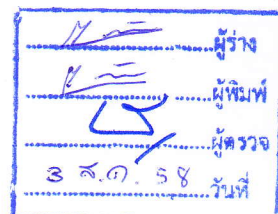 ผู้ร่าง
ผู้พิมพ์
ผู้ตรวจ
3 ส.ค. 58 วันที่